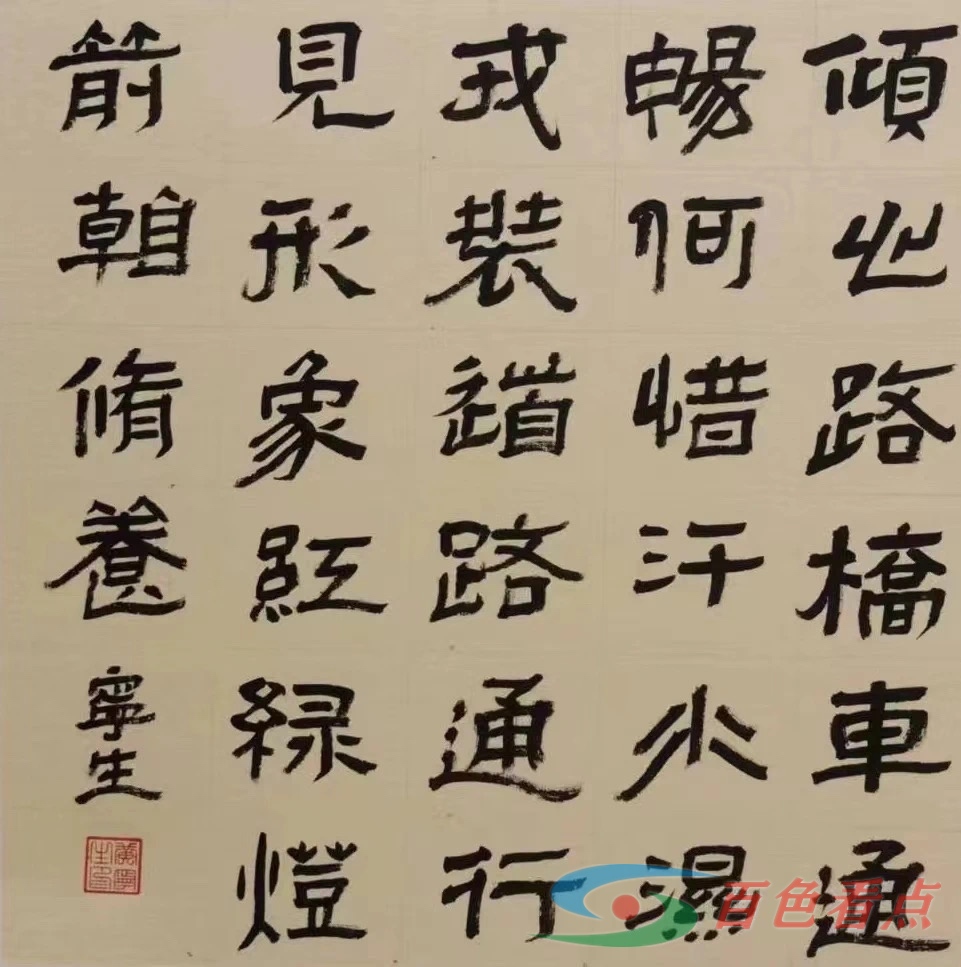 傾心路橋車通
暢何惜汗水濕
戎裝道路通行
見形象紅綠燈
前朝脩養
寧生
百色看点